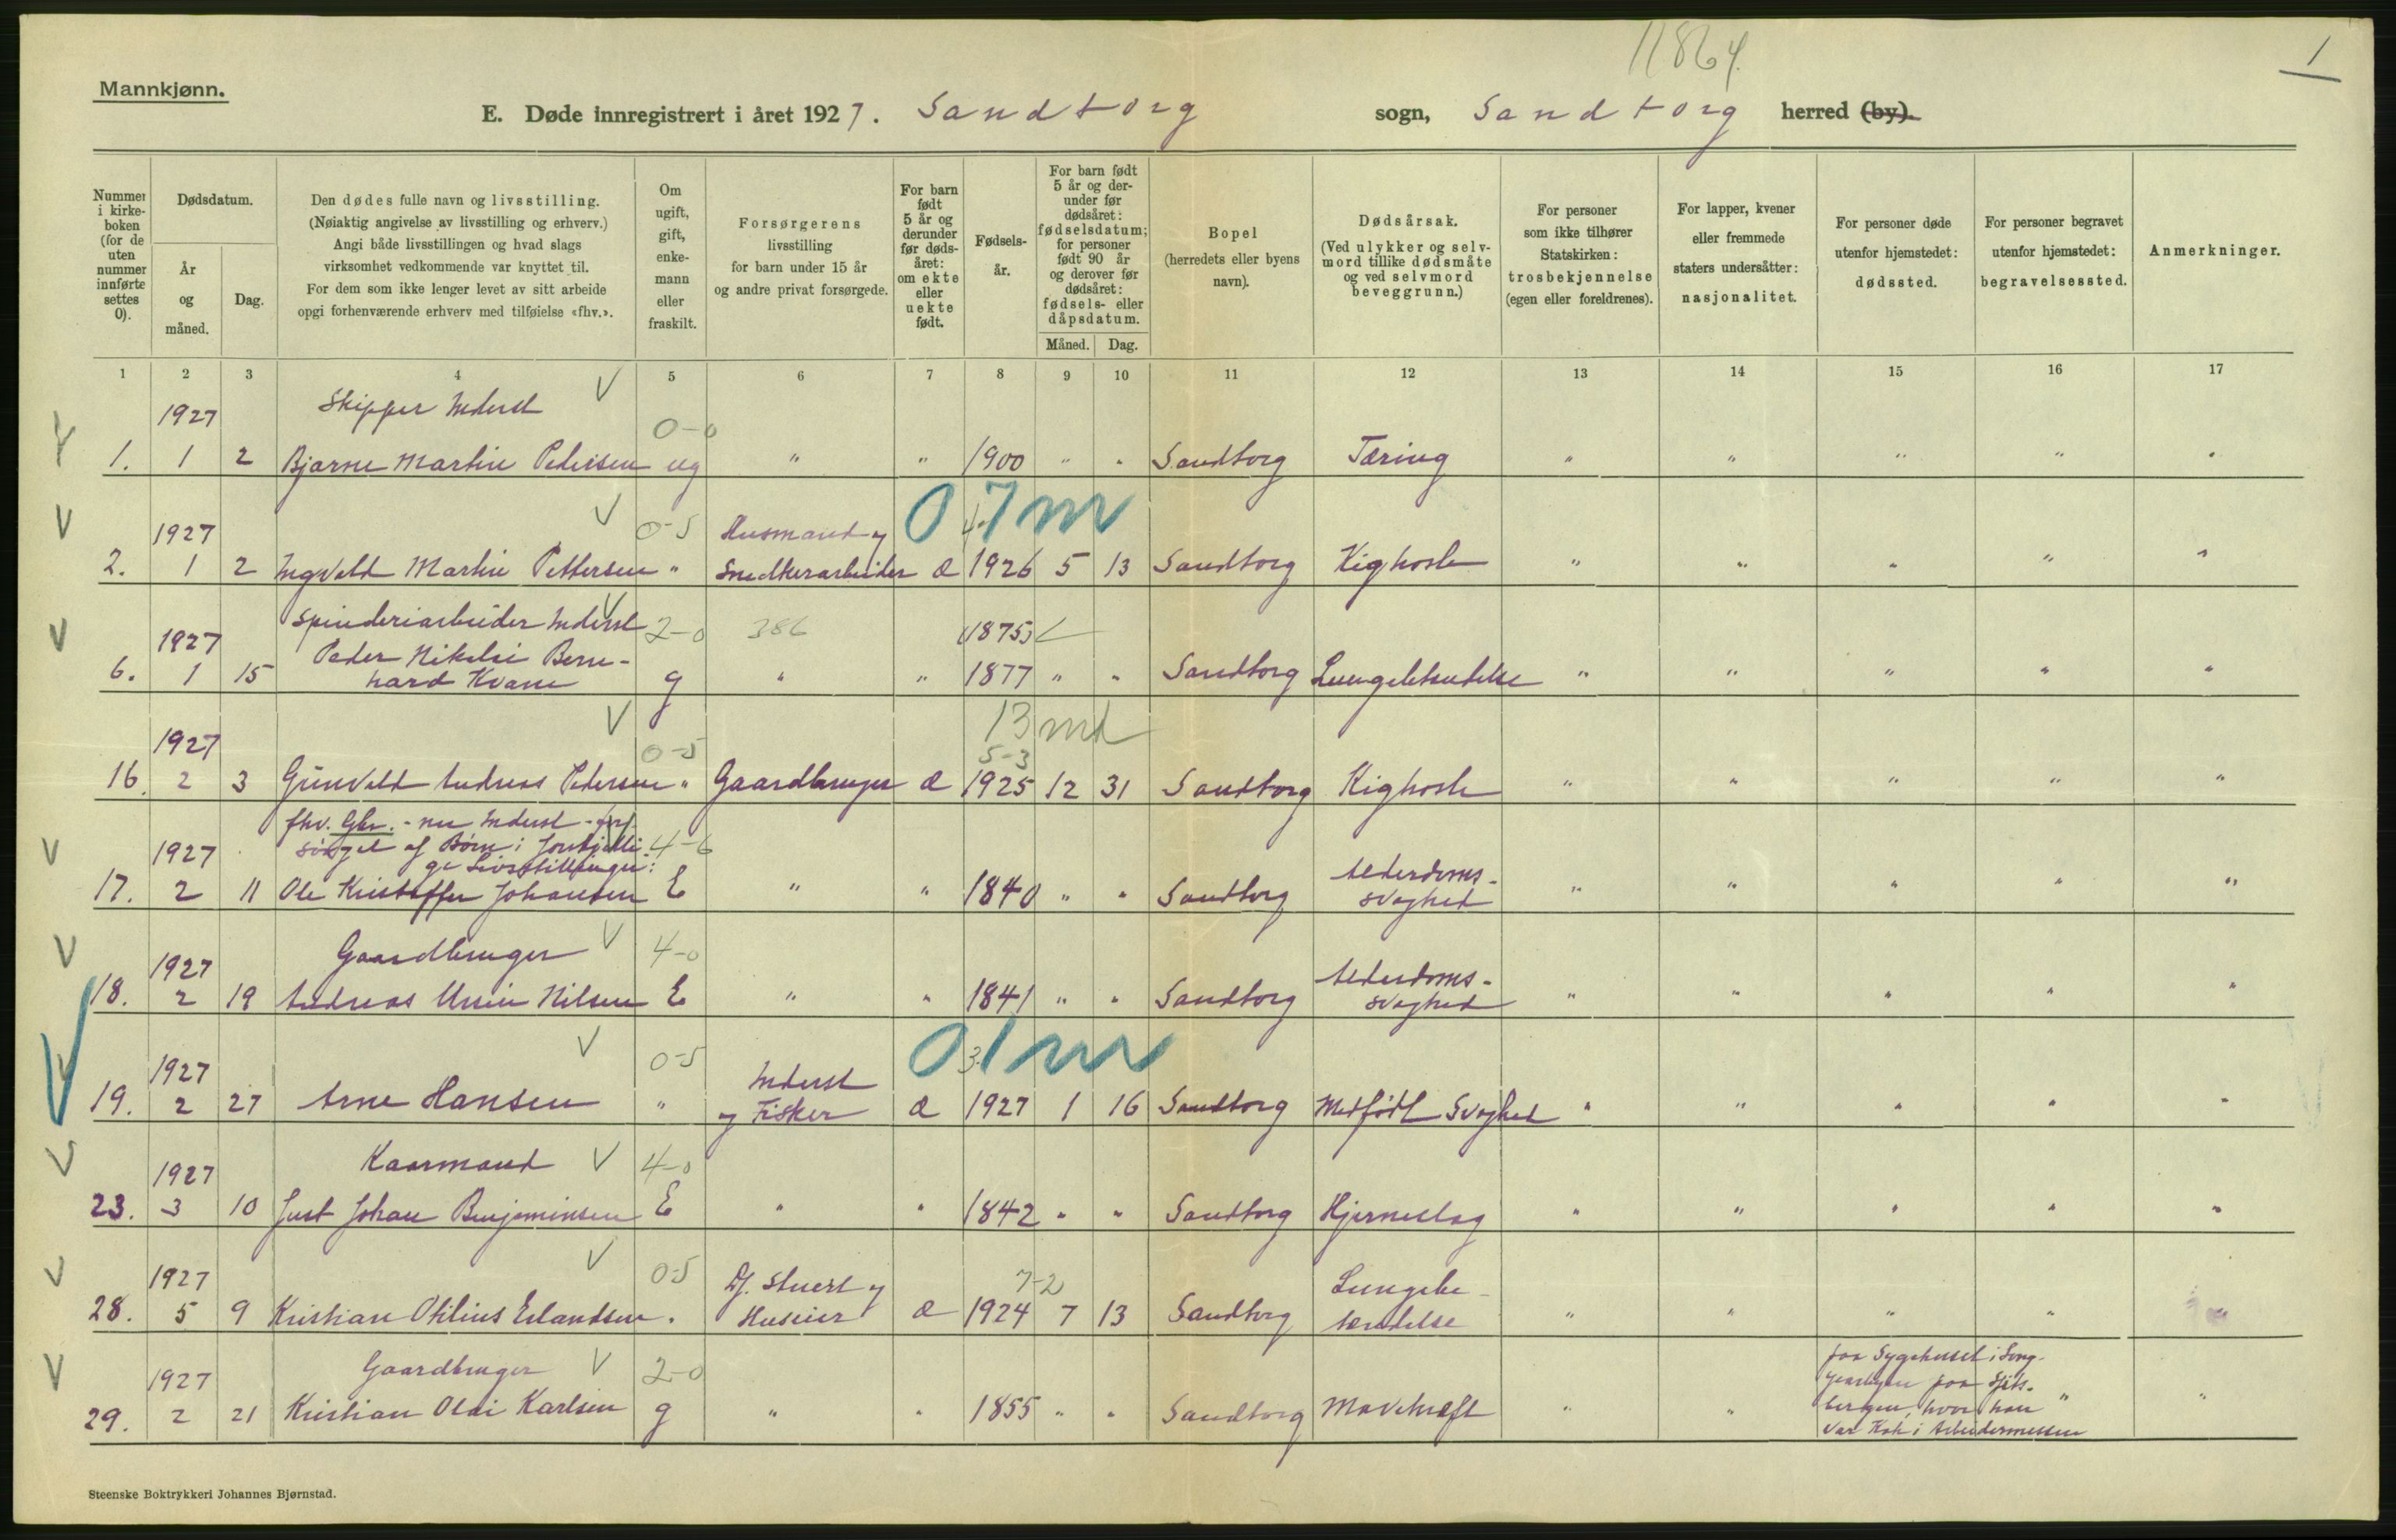 11864.
1
Mannkjønn.
E. Døde innregistrert i året 1927. Sandtorg sogn, Sandtorg herred (by).
Nummer i kirkeboken (for de uten nummer innførte settes 0).
Dødsdatum.
År og måned.
Dag.
Den dødes fulle navn og livsstilling.
(Nøiaktig angivelse av livsstilling og erhverv.)
Angi både livsstillingen og hvad slags
virksomhet vedkommende var knyttet til.
For dem som ikke lenger levet av sitt arbeide
opgi forhenværende erhverv med tilføielse «fhv.».
Om ugift, gift, enkemann eller fraskilt.
Forsørgerens
livsstilling
for barn under 15 år
og andre privat forsørgede.
For barn født 5 år og derunder før dødsåret: om ekte eller uekte født.
Fødselsår.
For barn født 5 år og derunder før dødsåret: fødselsdatum; for personer født 90 år og derover før dødsåret: fødsels- eller dåpsdatum.
Måned. Dag.
Bopel
(herredets eller byens
navn).
Dødsårsak.
(Ved ulykker og selvmord tillike dødsmåte og ved selvmord beveggrunn.)
For personer
som ikke tilhører
Statskirken:
trosbekjennelse
(egen eller foreldrenes).
For lapper, kvener
eller fremmede
staters undersåtter:
nasjonalitet.
For personer døde
utenfor hjemstedet:
dødssted.
For personer begravet
utenfor hjemstedet:
begravelsessted.
Anmerkninger.
1 2 3 4 5 6 7 8 9 10 11 12 13 14 15 16 17
1927 Skipper Inderst 0-0
1. 1 2 Bjarne Martin Pedersen ug " " 1900 " " Sandtorg Tæring " " " " "
1927 0-5 Husmand og 0 4. 7 m
2. 1 2 Ingvald Martin Pettersen " Snedkerarbeider Æ 1926 5 13 Sandtorg Kighoste " " " " "
1927 Spinderiarbeider Inderst 2-0 386 (1875)
Peder Nikolai Bern-
6. 1 15 hard Kvane g " " 1877 " " Sandtorg Lungebetændelse " " " " "
13 md
1927 0-5 5-3
16. 2 3 Grünvald Andreas Pedersen " Gaardbruger Æ 1925 12 31 Sandtorg Kighoste " " " " "
fhv. Gbr. - nu Inderst - for-
1927 sørget af Børn i forskjelli- 4-6
ge Livsstillinger: Alderdoms-
17. 2 11 Ole Kristoffer Johansen E " " 1840 " " Sandtorg svaghed " " " " "
1927 Gaardbruger 4-0 Alderdoms-
18. 2 19 Andreas Nilsen E " " 1841 " " Sandtorg svaghed " " " " "
1927 0-5 Inderst 0 3. 1 m
19. 2 27 Arne Hansen " og Fisker Æ 1927 1 16 Sandtorg Medfødt Svaghed " " " " "
1927 Kaarmand 4-0
23. 3 10 Just Johan Benjaminsen E " " 1842 " " Sandtorg Hjerneslag " " " " "
1927 0-5 Df. Stuert og 7-2 Lungebe-
28. 5 9 Kristian Otilius Erlandsen " Huseier Æ 1924 7 13 Sandtorg tændelse " " " "
1927 Gaardbruger 2-0
29. 2 21 Kristian Olai Karlsen g " " 1855 " " Sandtorg Mavekræft " " " "
paa Sygehuset i Long-
yearbyen paa Spits-
bergen, hvor han
var Kok i Arbeidermessen
Steenske Boktrykkeri Johannes Bjørnstad.